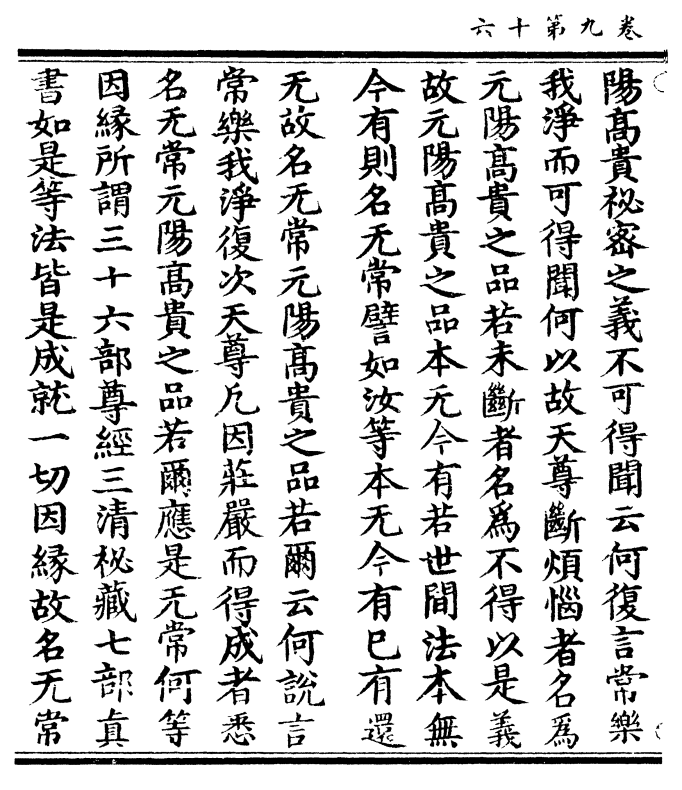 六十第九卷
陽髙貴祕密之義不可得聞云何復言常樂
我淨而可得聞何以故天尊斷煩惱者名爲
元陽髙貴之品若未斷者名爲不得以是義
故元陽髙貴之品本无今有若世間法本無
今有則名无常譬如汝等本无今有已有還
无故名无常元陽髙貴之品若爾云何說言
常樂我淨復次天尊凡因莊嚴而得成者悉
名无常元陽髙貴之品若爾應是无常何等
因緣所謂三十六部尊經三清祕藏七部真
書如是等法皆是成就一切因緣故名无常